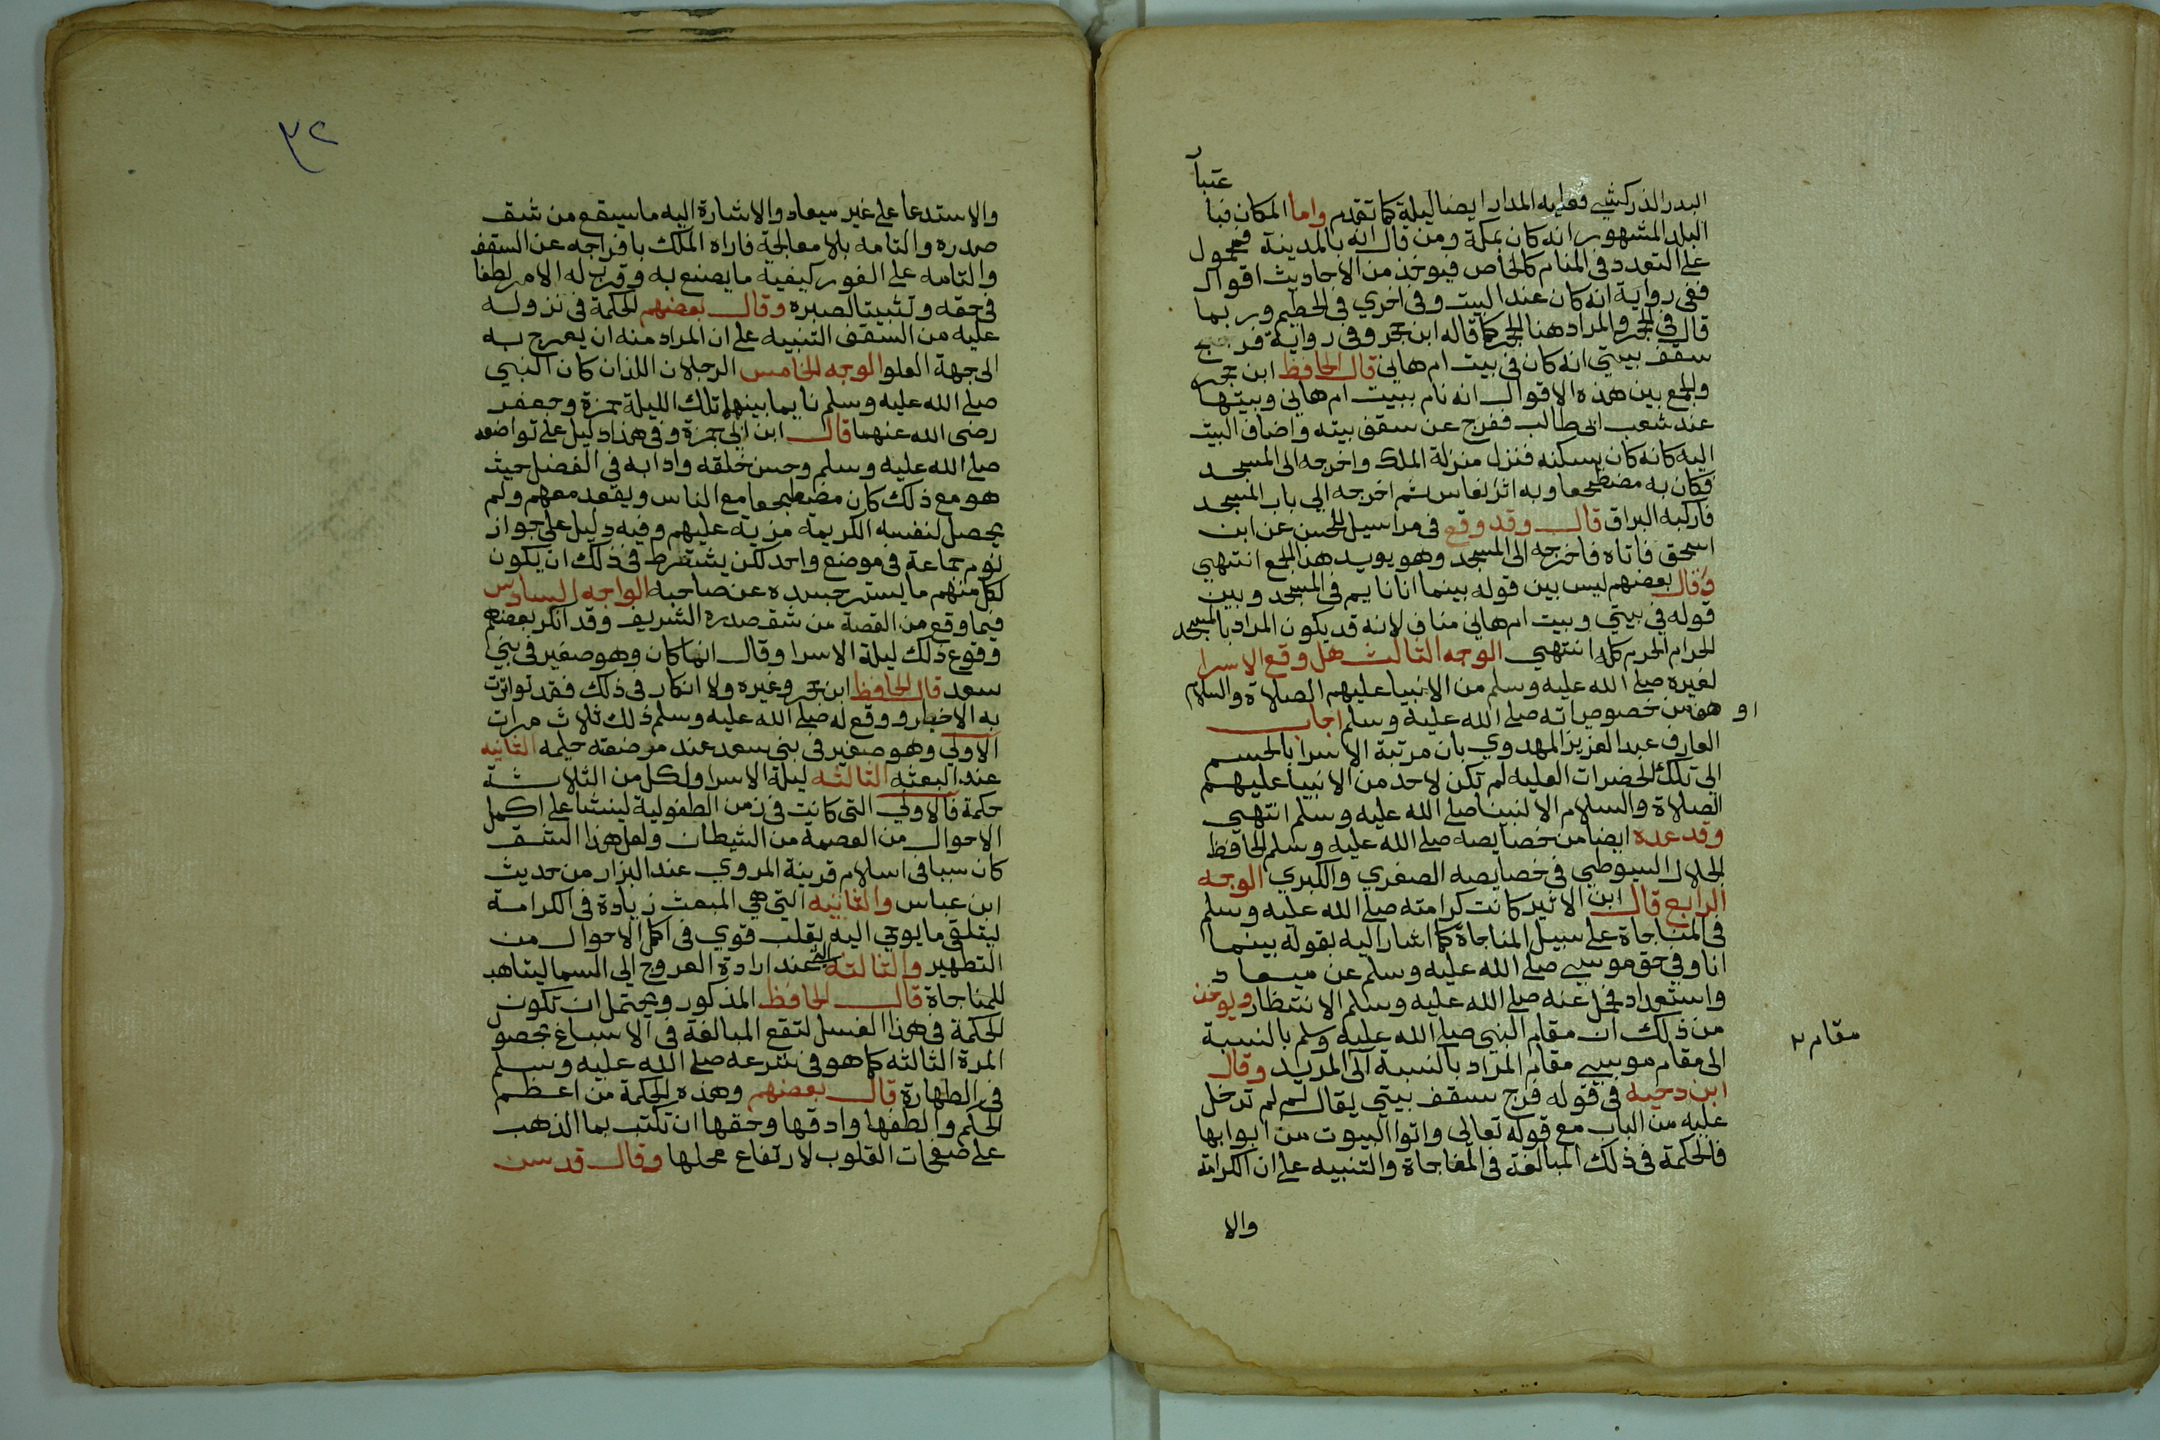 عتبار
البدر الذركشي فعليه المدار ايضا ليلة كما تقدم واما المكان فبا
البلد المشهور انه كان بمكة ومن قال انه بالمدينة فمحمول
على التعدد في المنام كالخاص فيوخذ من الاحاديث اقوال
ففى رواية انه كان عند البيت وفى اخري فى الحطيم وربما
قال فى الحجر والمراد هنا الحجر كما قاله ابن حجر وفى رواية فرج
سقف بيتي انه كان فى بيت ام هاني قال الحافظ ابن حجر
والجمع بين هذه الاقوال انه نام ببيت ام هانى وبيتها
عند شعب ابى طالب ففرج عن سقف بيته واضاف البيت
اليه كانه كان يسكنه فنزل منزلة الملك واخرجه الى المسجد
فكان به مضطجعا وبه اثر نعاس ثم اخرجه الى باب المسجد
فاركبه البراق قال وقد وقع فى مراسيل الحسن عن ابن
اسحق فاتاه فاخرجه الى المسجد وهو يويد هذا الجمع انتهي
وقال بعضهم ليس بين قوله بينما انا نايم فى المسجد وبين
قوله فى بيتي وبيت ام هانى مناف لانه قد يكون المراد بالمسجد
الحرام الحرم كله انتهي الوجه الثالث هل وقع الاسرا
لغيره صلى الله عليه وسلم من الانبيا عليهم الصلاة والسلام
او هو من خصوصياته صلى الله عليه وسلم اجاب
العارف عبد العزيز المهدوي بان مرتبة الاسرا بالجسم
الى تلك الحضرات العليه لم تكن لاحد من الانبيا عليهم
الصلاة والسلام الا لنبينا صلى الله عليه وسلم انتهي
وقد عده ايضا من خصايصه صلى الله عليه وسلم الحافظ
الجلال السيوطي فى خصايصه الصغري والكبري الوجه
الرابع قال ابن الاثير كانت كرامته صلى الله عليه وسلم
فى المناجاة على سبيل المناجاة كما اشار اليه بقوله بينما
انا وفى حق موسي صلى الله عليه وسلم عن ميعاد
واستعداد فحمل عنه صلى الله عليه وسلم الانتظار ويوخذ
من ذلك ان مقام النبي صلى الله عليه وسلم بالنسبة
مقام ٢
الى مقام موسي مقام المراد بالنسبة الى المريد وقال
ابن دحيه فى قوله فرج سقف بيتي يقال لم لم تدخل
عليه من الباب مع قوله تعالى واتوا البيوت من ابوابها
فالحكمة فى ذلك المبالغة فى المفاجاة والتنبيه على ان الكرامة
والا
٣٢
والاستدعا على غير ميعاد والاشارة اليه ما سيقع من شق
صدره والتامه بلا معالجة فاراه الملك بافراجه عن السقف
والتامه على الفور كيفية ما يصنع به وقرب له الامر لطفا
فى حقه وتثبيتا لصبره وقال بعضهم الحكمة فى نزوله
عليه من السقف التنبيه على ان المراد منه ان يعرج به
الى جهة العلو الوجه الخامس الرجلان اللذان كان النبي
صلى الله عليه وسلم نايما بينهما تلك الليلة حمزة وجعفر
رضى الله عنهما قال ابن ابي جمرة وفى هذا دليل على تواضعه
صلى الله عليه وسلم وحسن خلقه وادابه فى الفضل حيث
هو مع ذلك كان مضطجعا مع الناس ويقعد معهم ولم
يحصل لنفسه الكريمة مزية عليهم وفيه دليل على جواز
نوم جماعة فى موضع واحد لكن يشترط فى ذلك ان يكون
لكل منهم ما يستر جسده عن صاحبه الواجه السادس
فيما وقع من القصة من شق صدره الشريف وقد انكر بعضهم
وقوع ذلك ليلة الاسرا وقال انها كان وهو صغير فى بني
سعد قال الحافظ ابن حجر وغيره ولا انكار فى ذلك فقد تواترت
به الاخبار ووقع له صلى الله عليه وسلم ذلك ثلاث مرات
الاولي وهو صغير فى بنى سعد عند مرضعته حليمه الثانيه
عند البعثه الثالثه ليلة الاسرا ولكل من الثلاثة
حكمة فالاولي التى كانت فى زمن الطفولية لينشا على اكمل
الاحوال من العصمة من الشيطان ولعل هذا الشق
كان سببا فى اسلام قرينة المروي عند البزار من حديث
ابن عباس والثانيه التي هي المبعث زيادة فى الكرامة
ليتلقى ما يوحي اليه بقلب قوي فى اكمل الاحوال من
التطهير والثالثة التي عند ارادة العروج الى السما ليتاهب
للمناجاة قال الحافظ المذكور ويحتمل ان تكون
الحكمة فى هذا الغسل لتقع المبالغة فى الاسباغ بحصول
المرة الثالثه كما هو فى شرعه صلى الله عليه وسلم
فى الطهارة قال بعضهم وهذه الحكمة من اعظم
الحكم والطفها وادقها وحقها ان تكتب بما الذهب
على صفحات القلوب لارتفاع محلها وقال قدس